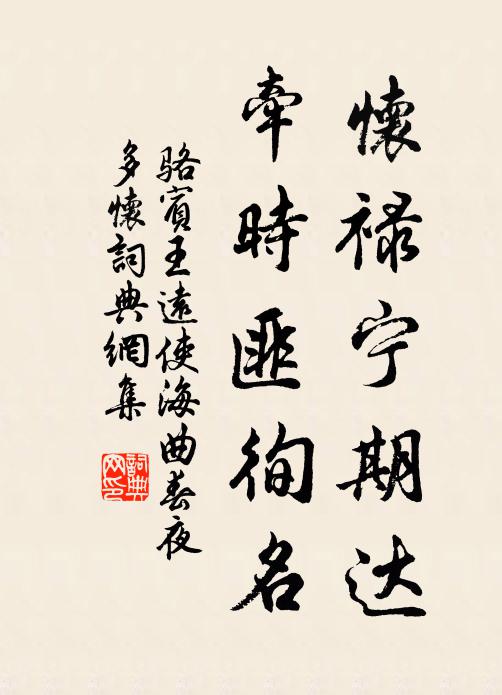 懷禄宁期达
牽時匪徇名
骆賓王遠使海曲春夜
多懷詞典網集
詞典网印